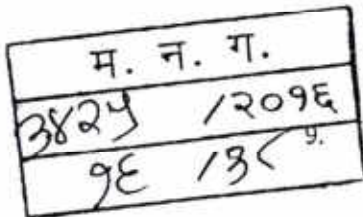 म. न. ग.
३४२५ /२०१६
१६ /३८